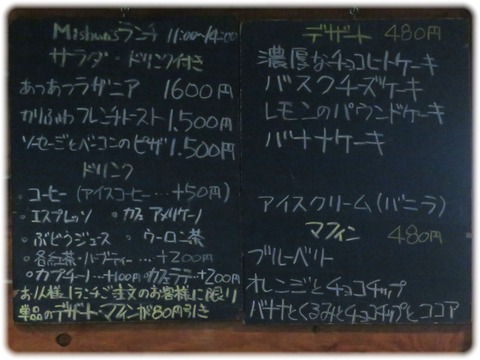 Mishunsランチ 11:00〜14:00
サラダ・ドリンク付き
あつあつラザニア 1600円
かりふわフレンチトースト 1,500円
ソーセージとベーコンのピザ 1,500円
ドリンク
・コーヒー (アイスコーヒー…+50円)
・エスプレッソ ・カフェアメリケーノ
・ぶどうジュース ・ウーロン茶
・各紅茶・ハーブティー… +200円
・カプチーノ…+100円・カフェラテ…+200円
お1人様1ランチご注文のお客様に限り
単品のデザート・マフィンが80円引き
デザート 480円
濃厚なチョコレートケーキ
バスクチーズケーキ
レモンのパウンドケーキ
バナナケーキ
アイスクリーム(バニラ)
マフィン 480円
ブルーベリー
オレンジとチョコチップ
バナナとくるみとチョコチップとココア